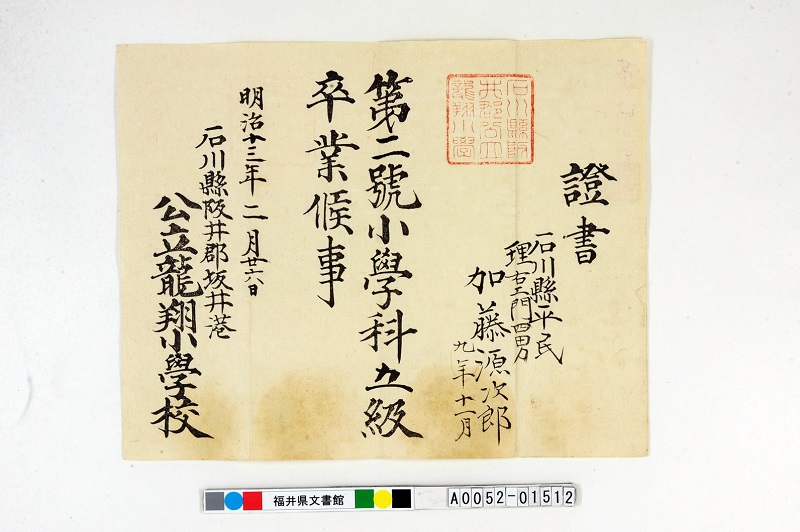 證書
石川縣平民
理右エ門四男
加藤源次郎
九年十一月
石川縣阪
井郡公立
龍翔小學
第二號小學科五級
卒業候事
明治十三年二月廿六日
石川縣阪井郡坂井港
公立龍翔小學校
福井県文書館
A0052-01512